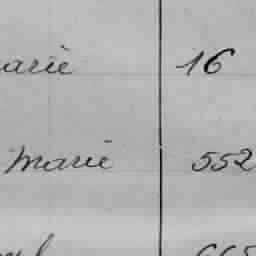 arie 16
Marie 552